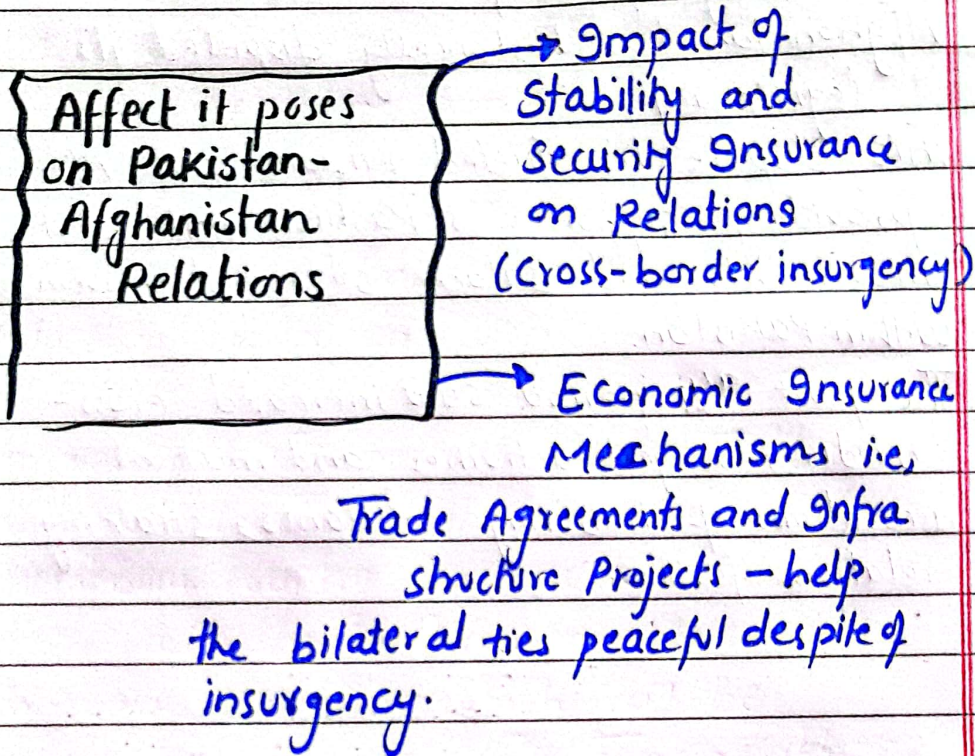 Affect it poses
on Pakistan-
Afghanistan
Relations
Impact of
Stability and
Security Insurance
on Relations
(Cross-border insurgency)
Economic Insurance
Mechanisms i.e,
Trade Agreements and Infra
structure Projects - help
the bilateral ties peaceful despite of
insurgency.